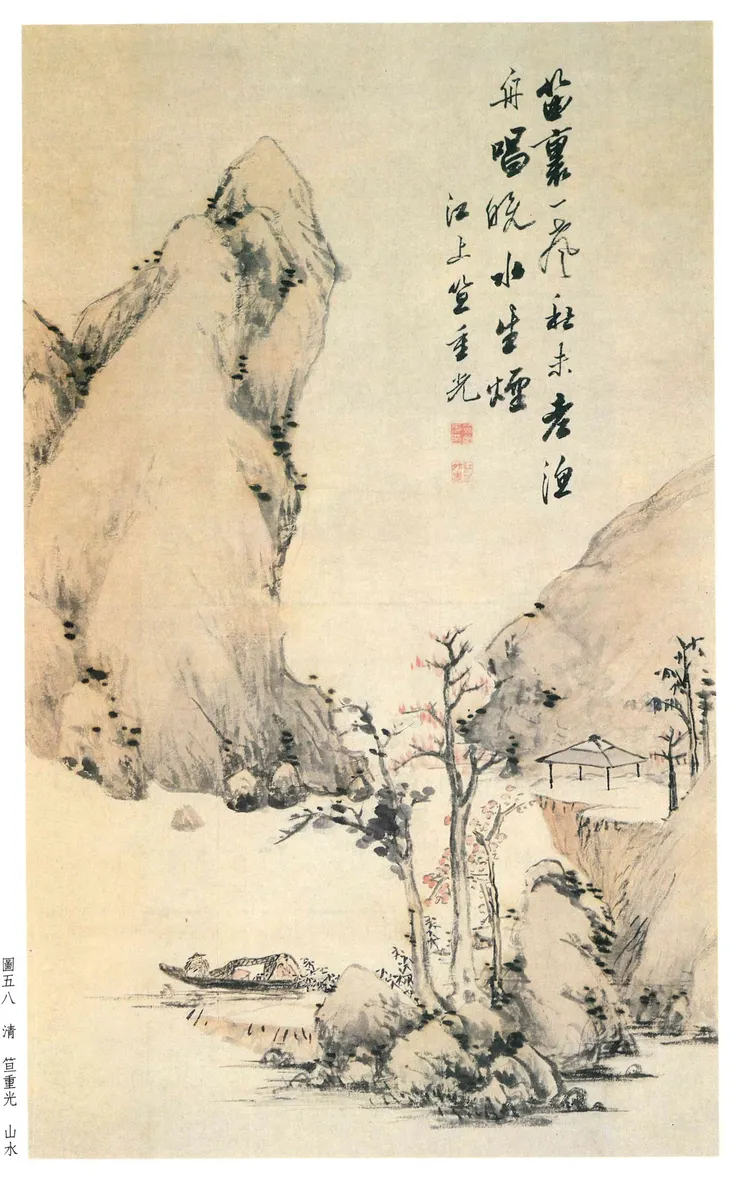 畫裏一巖秋未老漁
舟唱晚水生煙
江上笪重光
圖五八 清 笪重光 山水